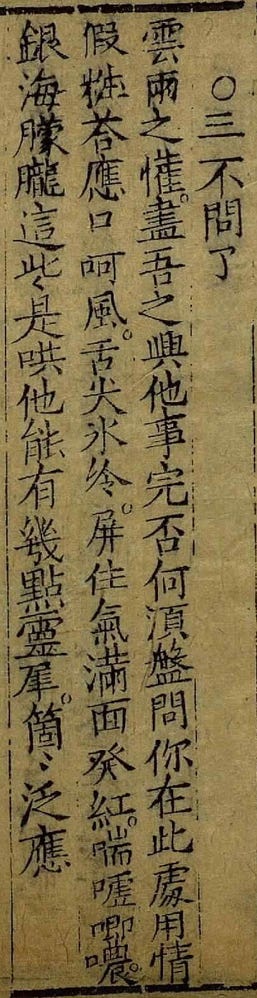 〇三不問了
雲雨之懽。盡吾之興他事完否何須盤問你在此處用情
假粧荅應口呵風。舌尖氷冷。屏住氣滿面發紅。喘嘘唧噥。
銀海朦朧這些是哄他能有幾點靈犀。箇〻泛應